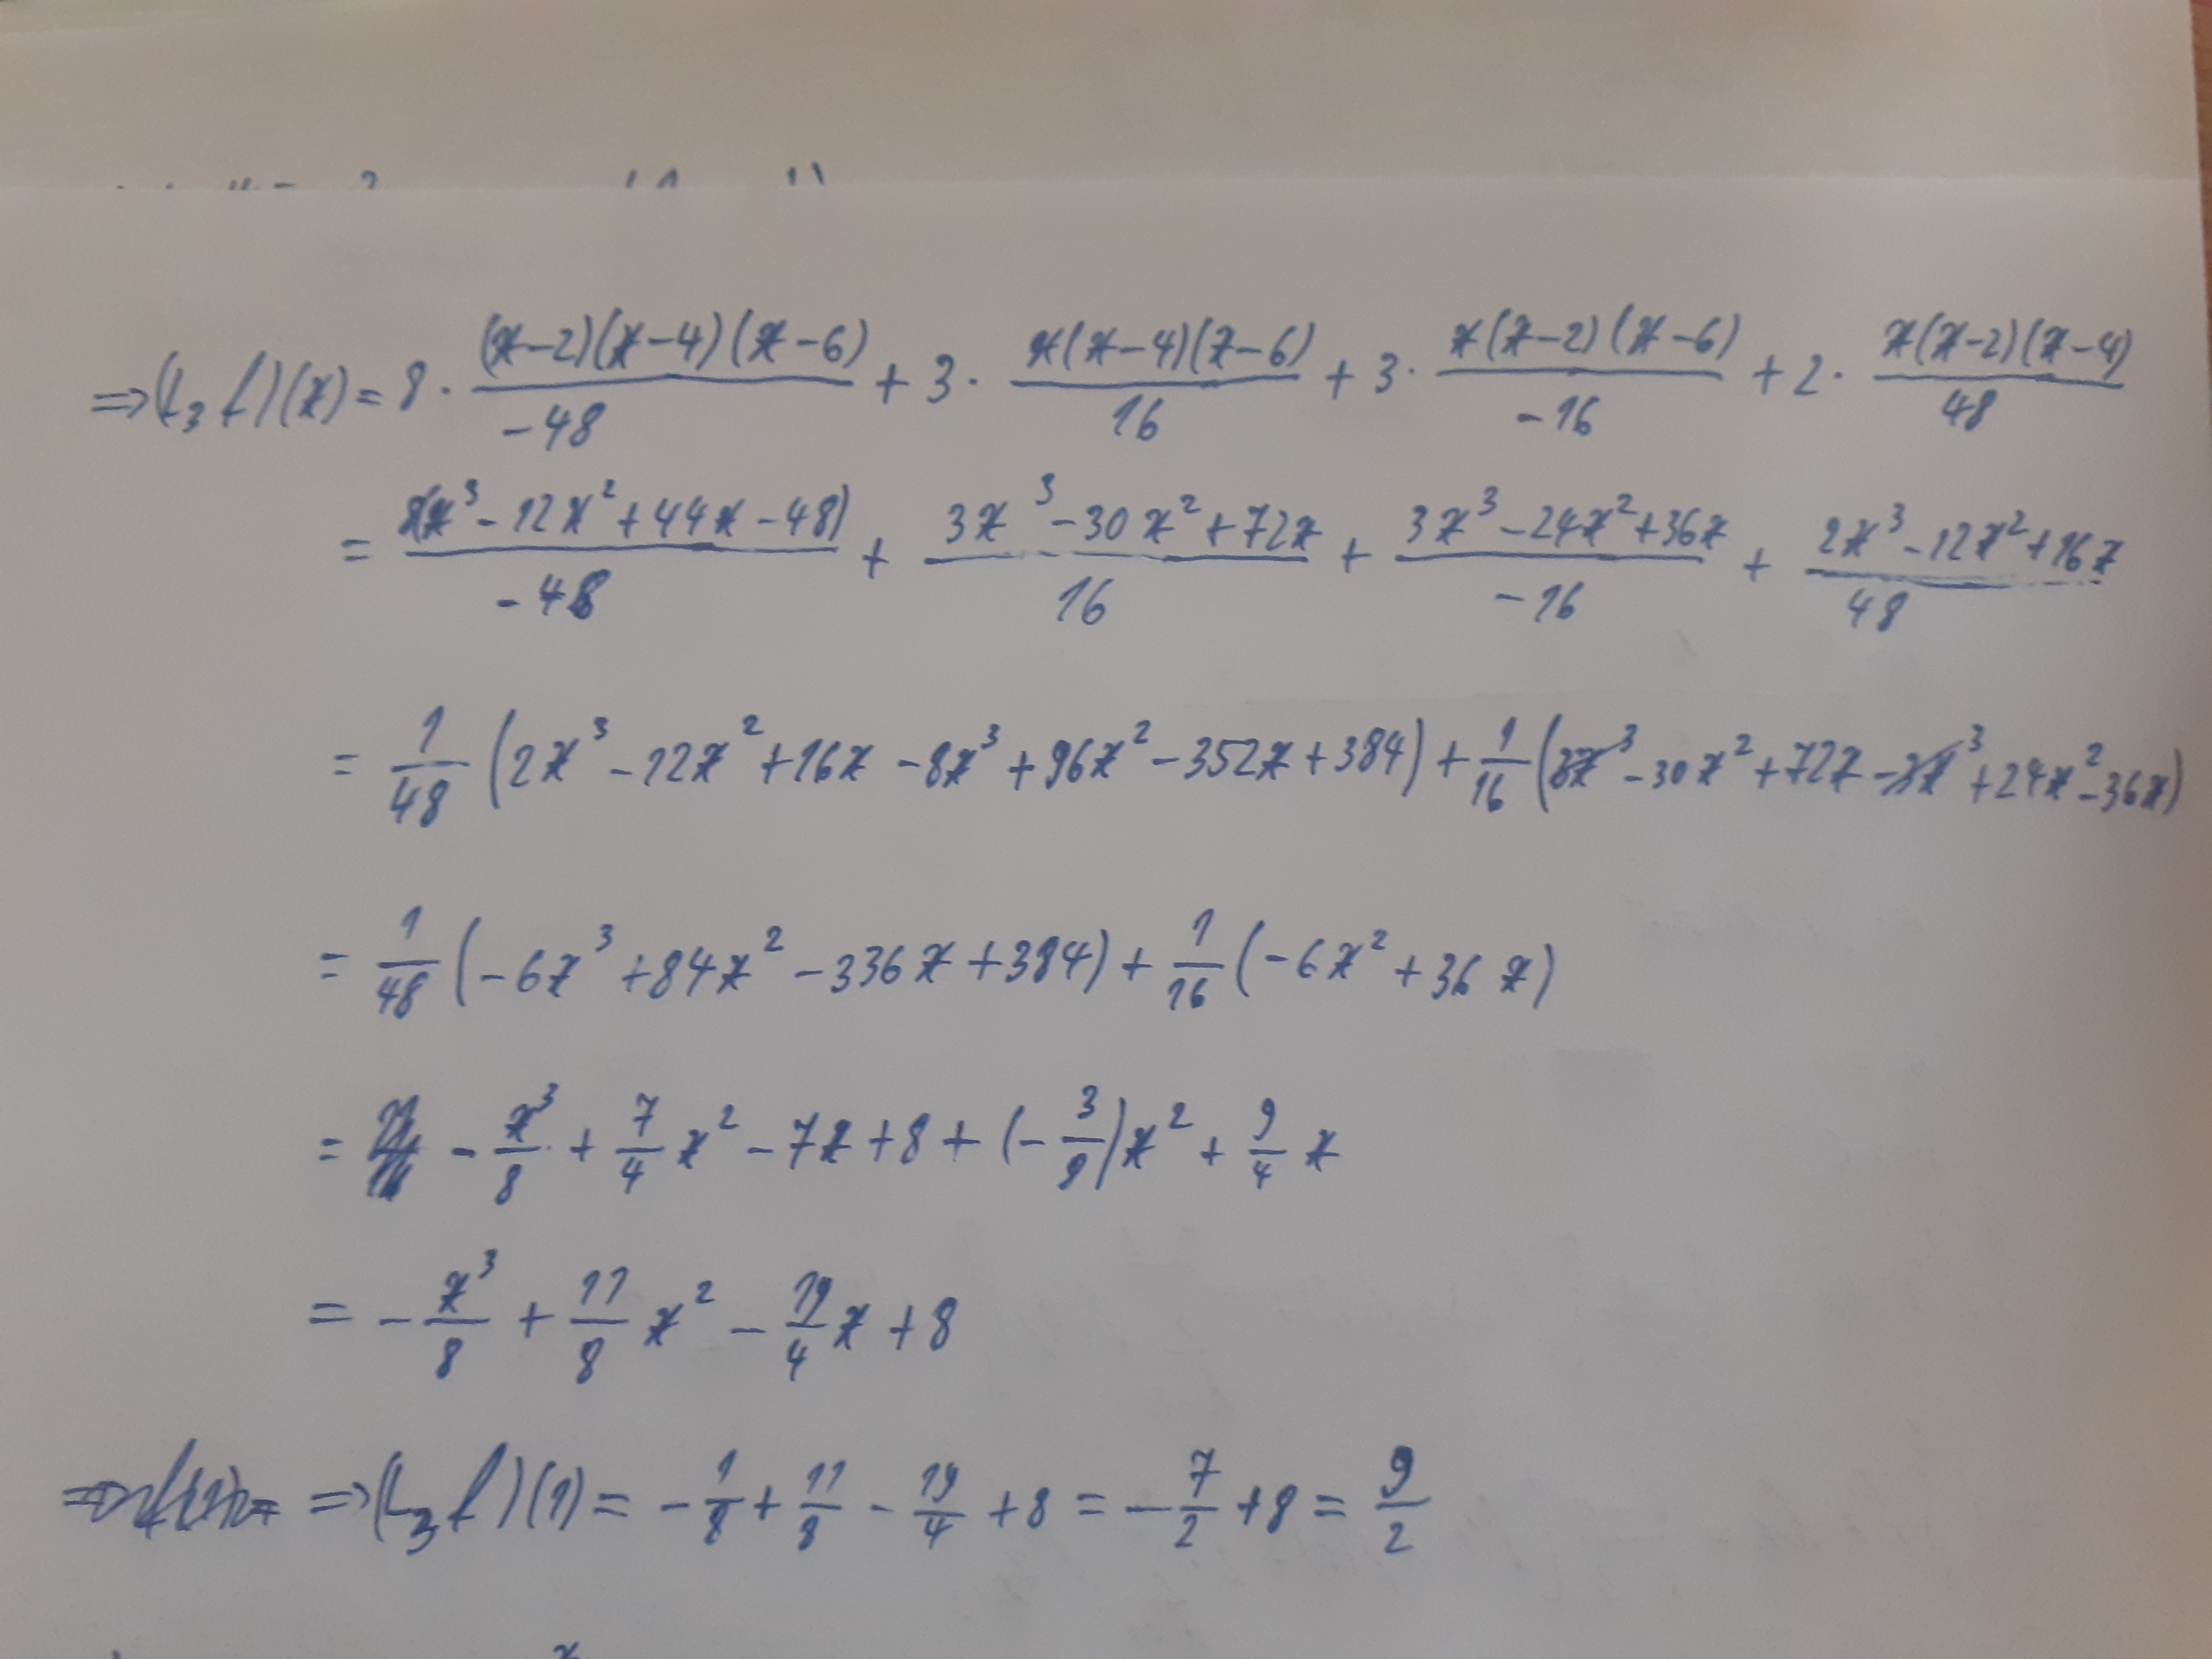 ⇒(L₃f)(x) = 8 · (x-2)(x-4)(x-6)/-48 + 3 · x(x-4)(x-6)/16 + 3 · x(x-2)(x-6)/-16 + 2 · x(x-2)(x-4)/48
= 8(x³ - 12x² + 44x - 48)/-48 + (3x³ - 30x² + 72x)/16 + (3x³ - 24x² + 36x)/-16 + (2x³ - 12x² + 16x)/48
= 1/48 (2x³ - 12x² + 16x - 8x³ + 96x² - 352x + 384) + 1/16 (3x³ - 30x² + 72x - 3x³ + 24x² - 36x)
= 1/48 (-6x³ + 84x² - 336x + 384) + 1/16 (-6x² + 36x)
= - x³/8 + 7/4 x² - 7x + 8 + (-3/8)x² + 9/4 x
= - x³/8 + 11/8 x² - 19/4 x + 8
⇒(L₃f)(1) = - 1/8 + 11/8 - 19/4 + 8 = - 7/2 + 8 = 9/2